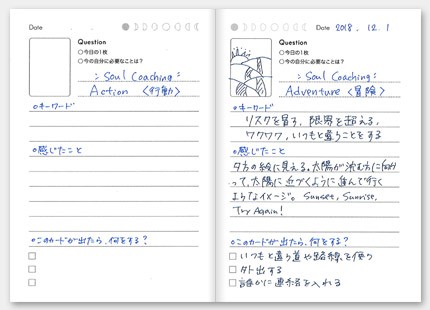 Date
Question
○今日の1枚
○今の自分に必要なことは?
: Soul Coaching :
Action 〈行動〉
○キーワード
○感じたこと
○このカードが出たら、何をする?
Date 2018. 12. 1
Question
○今日の1枚
○今の自分に必要なことは?
: Soul Coaching :
Adventure 〈冒険〉
○キーワード
リスクを冒す、限界を超える、
ワクワク、いつもと違うことをする
○感じたこと
夕方の絵に見える。太陽が沈む方に向か
って、太陽に近づくように進んで行く
ようなイメージ。Sunset, Sunrise,
Try Again!
○このカードが出たら、何をする?
いつもと違う道や路線を使う
外出する
誰かに連絡を入れる